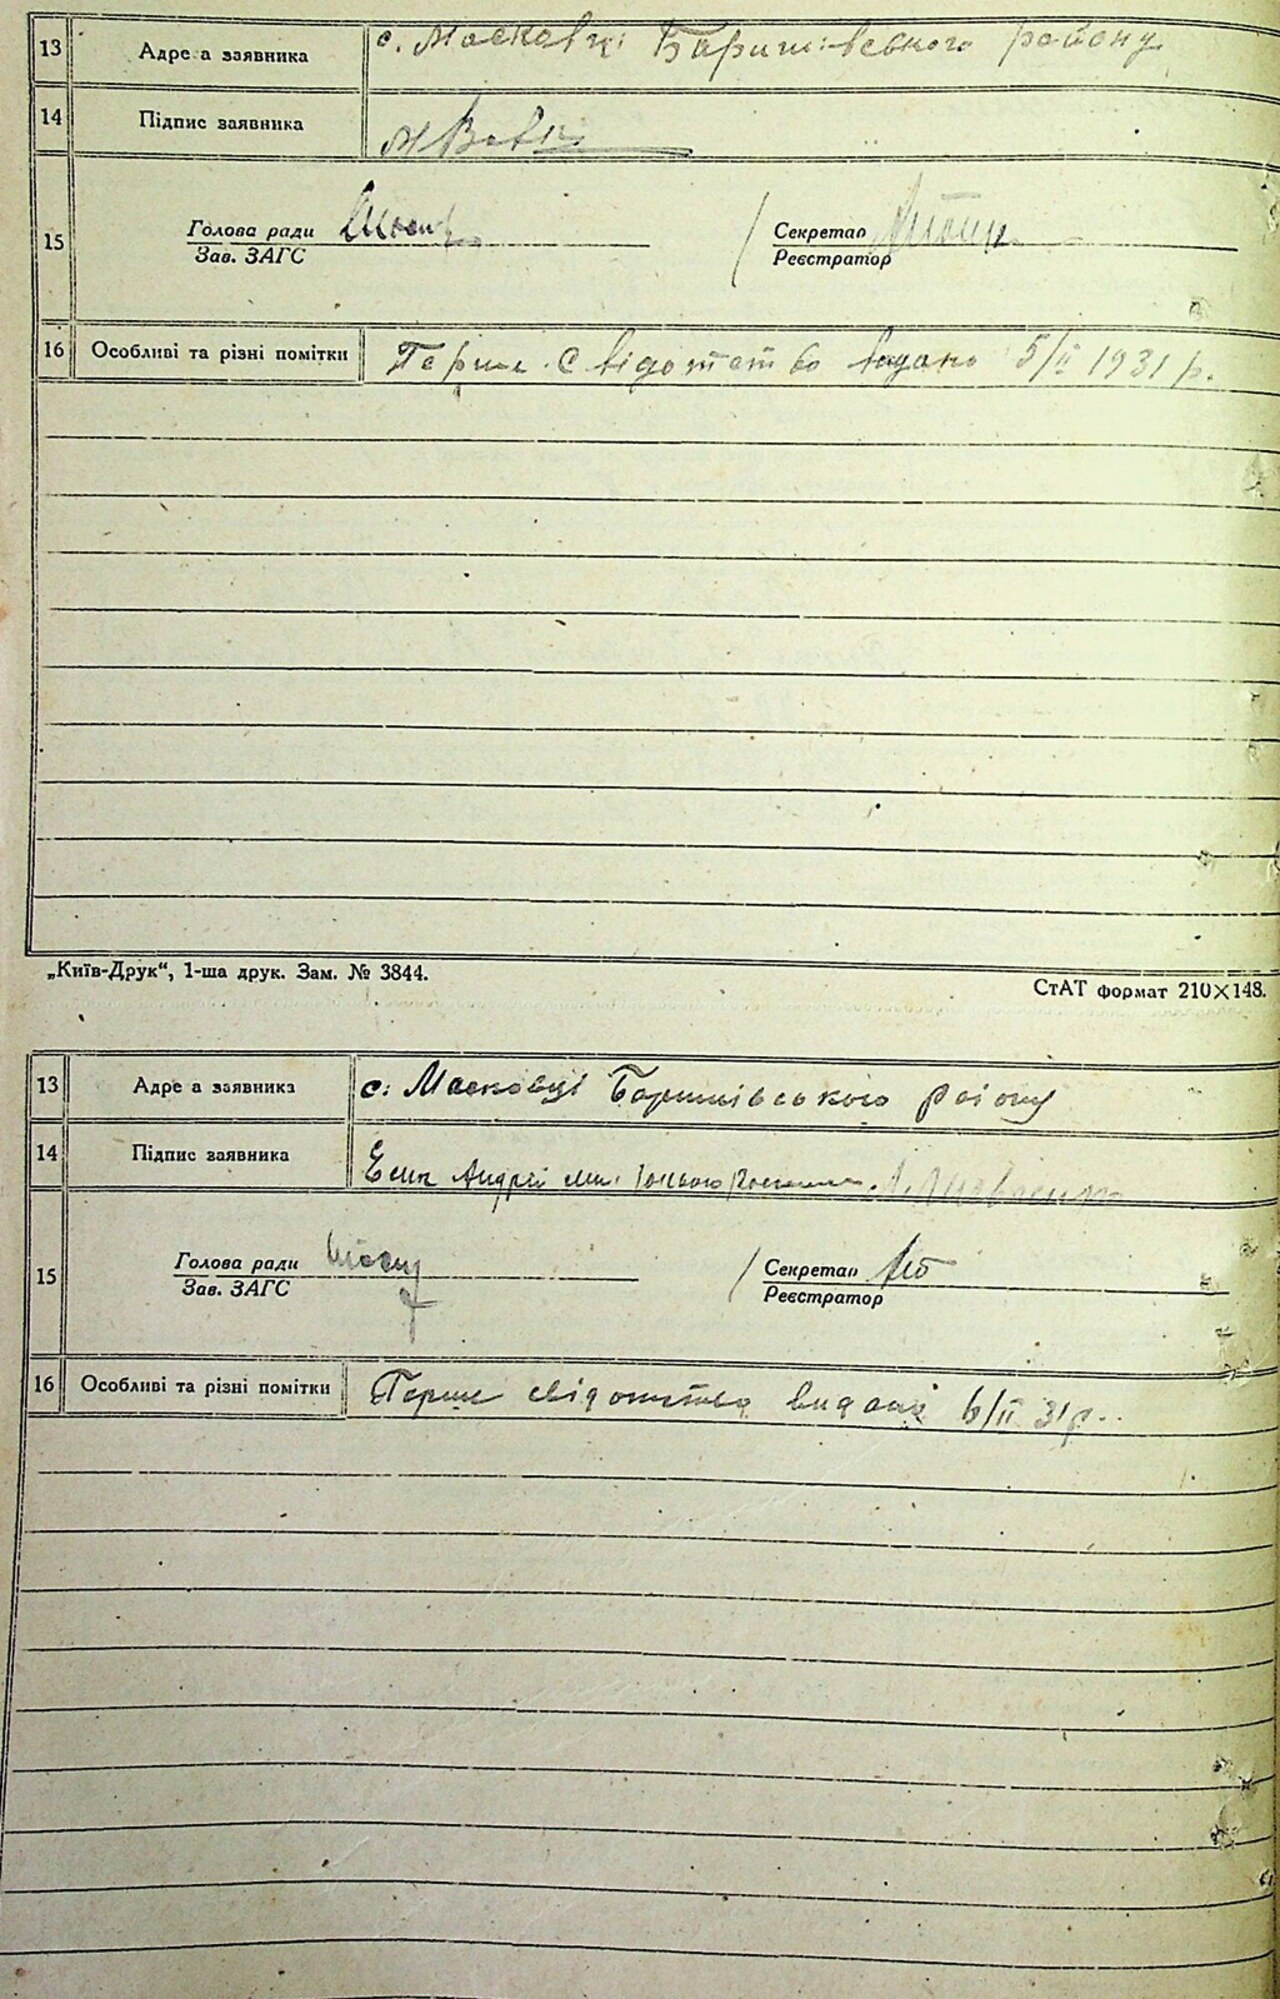 13 Адре а заявника с. Масковці Баришівського району
14 Підпис заявника
15 Голова ради Секретар
Зав. ЗАГС Реєстратор
16 Особливі та різні помітки Перше свідотство видано 5/II 1931 р.
„Київ-Друк“, 1-ша друк. Зам. № 3844.
СтАТ формат 210×148.
13 Адре а заявника с. Масковці Баришівського району
14 Підпис заявника Андрій
15 Голова ради Секретар
Зав. ЗАГС Реєстратор
16 Особливі та різні помітки Перше свідотство видане 6/II 31 р.